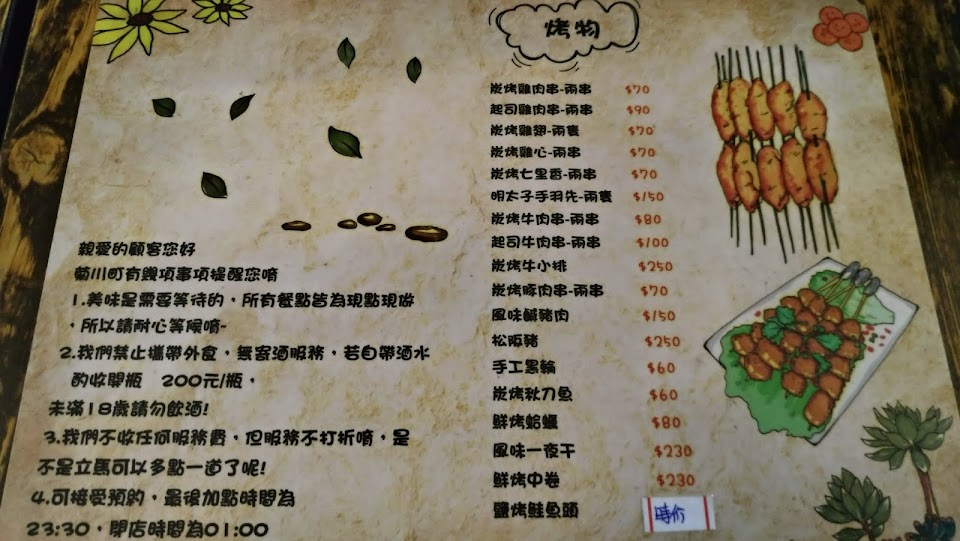 親愛的顧客您好
菊川町有幾項事項提醒您唷
1.美味是需要等待的，所有餐點皆為現點現做
，所以請耐心等候唷~
2.我們禁止攜帶外食，無寄酒服務，若自帶酒水
酌收開瓶 200元/瓶，
未滿18歲請勿飲酒!
3.我們不收任何服務費，但服務不打折唷，是
不是立馬可以多點一道了呢!
4.可接受預約，最後加點時間為
23:30，閉店時間為01:00
烤物
炭烤雞肉串-兩串 $70
起司雞肉串-兩串 $90
炭烤雞翅-兩隻 $70
炭烤雞心-兩串 $70
炭烤七里香-兩串 $70
明太子手羽先-兩隻 $150
炭烤牛肉串-兩串 $80
起司牛肉串-兩串 $100
炭烤牛小排 $250
炭烤豚肉串-兩串 $70
風味鹹豬肉 $150
松阪豬 $250
手工黑輪 $60
炭烤秋刀魚 $60
鮮烤蛤蠣 $80
風味一夜干 $230
鮮烤中卷 $230
鹽烤鮭魚頭 時价